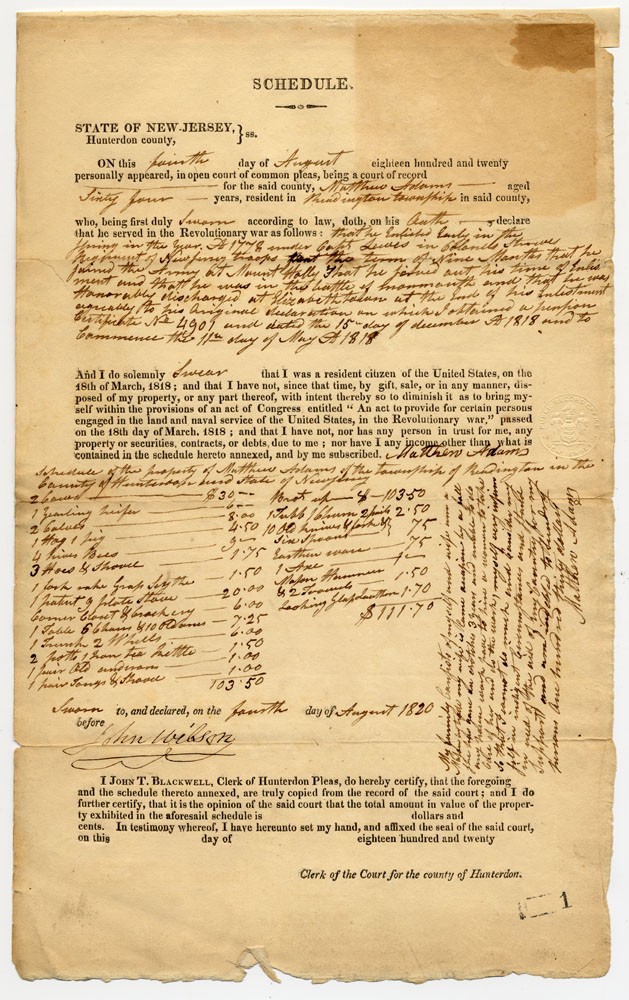 SCHEDULE.
STATE OF NEW-JERSEY, } ss.
Hunterdon county,
ON this fourth day of August eighteen hundred and twenty
personally appeared, in open court of common pleas, being a court of record
for the said county, Matthew Adams aged
Sixty four years, resident in Readington township in said county,
who, being first duly Sworn according to law, doth, on his Oath declare
that he served in the Revolutionary war as follows: that he Enlisted Early in the
Spring in the Year AD 1778 under Capt Lewes in Colonel
Regiment of New Jersey troops the term of Nine Months that he
joined the Army at Mount Holly That he served out his time of Enlis
ment and that he was in the battle of monmouth and that he was
Honorably discharged at Elizabethtown at the End of his Enlistment
agreeably to his Original declaration on which I obtained a pension
Certificate No 4901 and dated the 15th day of december AD 1818 and to
Commence the 11th day of May AD 1818
And I do solemnly Swear that I was a resident citizen of the United States, on the
18th of March, 1818; and that I have not, since that time, by gift, sale, or in any manner, dis-
posed of my property, or any part thereof, with intent thereby so to diminish it as to bring my-
self within the provisions of an act of Congress entitled "An act to provide for certain persons
engaged in the land and naval service of the United States, in the Revolutionary war," passed
on the 18th day of March, 1818; and that I have not, nor has any person in trust for me, any
property or securities, contracts, or debts, due to me; nor have I any income other than what is
contained in the schedule hereto annexed, and by me subscribed. Matthew Adams
Schedule of the property of Matthew Adams of the township of Readington in the
County of Hunterdon and State of New Jersey
2 Cows $30
1 Yearling heifer 6
2 Calves 8.00
1 Hog 1 pig 4.50
4 Hives Bees
3 Hoes & Shovel 1.75
1 fork rake Grap Sythe 1.50
1 patent 9 plate Stove 20.00
Corner Closet & Crockery 6.00
1 Table 6 Chairs & 10 Old 7.25
1 Trunk 2 Whells 6.00
2 potts 1 iron tea kettle 1.50
1 pair Old andirons 1.00
1 pair Tongs & Shovel 1.00
103.50
Brot up $ 103.50
1 Tubb 1 Churn 2 pails 2.50
10 Old knives & forks &
Six Spoons 75
Earthen ware 75
1 Axe 1
Mason Hammer
& 2 Trowels 1.50
Looking Glass Lanthern 1.70
$111.70
My family Consists of myself and wife am a
Mason by my wife is become
she has gone on crutches 3 years and unable to
any labour would have to hire a woman to take
Care of her and to do the work; myself very
so that I cannot do much and consider myself
in indigent Circumstances and Stand
in need of the aid of my Country for my
Support and am indebted to different
persons One hundred and fifty dollars
Matthew Adams
Sworn to, and declared, on the fourth day of August 1820
before
John Wilson
I JOHN T. BLACKWELL, Clerk of Hunterdon Pleas, do hereby certify, that the foregoing
and the schedule thereto annexed, are truly copied from the record of the said court; and I do
further certify, that it is the opinion of the said court that the total amount in value of the proper-
ty exhibited in the aforesaid schedule is dollars and
cents. In testimony whereof, I have hereunto set my hand, and affixed the seal of the said court,
on this day of eighteen hundred and twenty
Clerk of the Court for the county of Hunterdon.
1